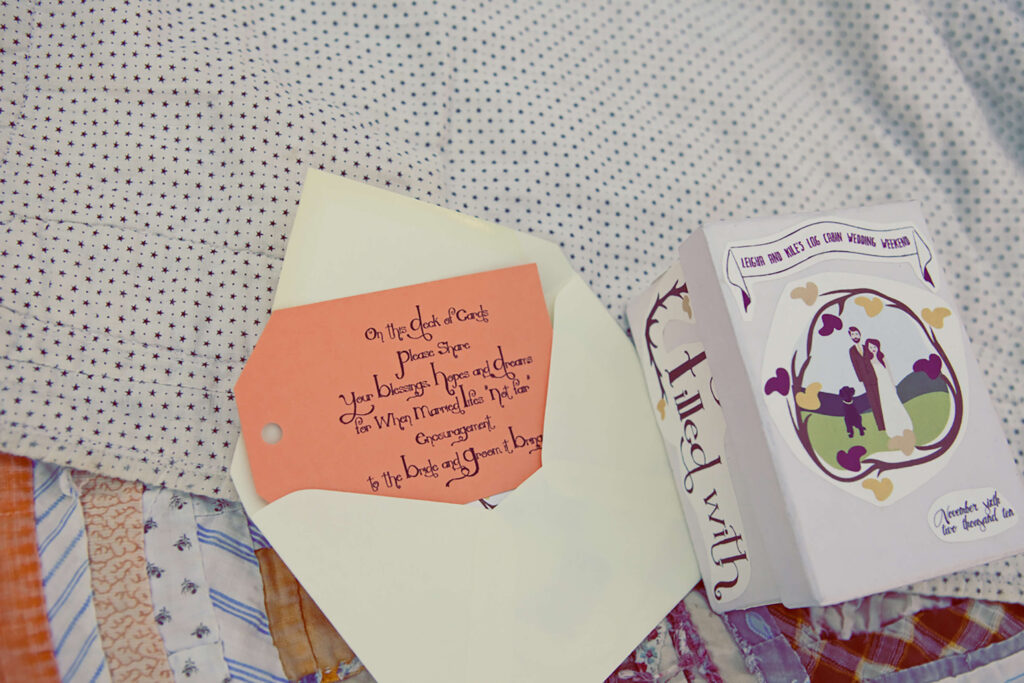 On this deck of Cards
Please Share
Your blessings, hopes and dreams
for When Married Life's "Not fair"
Encouragement,
to the bride and groom, it bring
LEIGHA AND KILE'S LOG CABIN WEDDING WEEKEND
Filled with
November sixth
two thousand ten